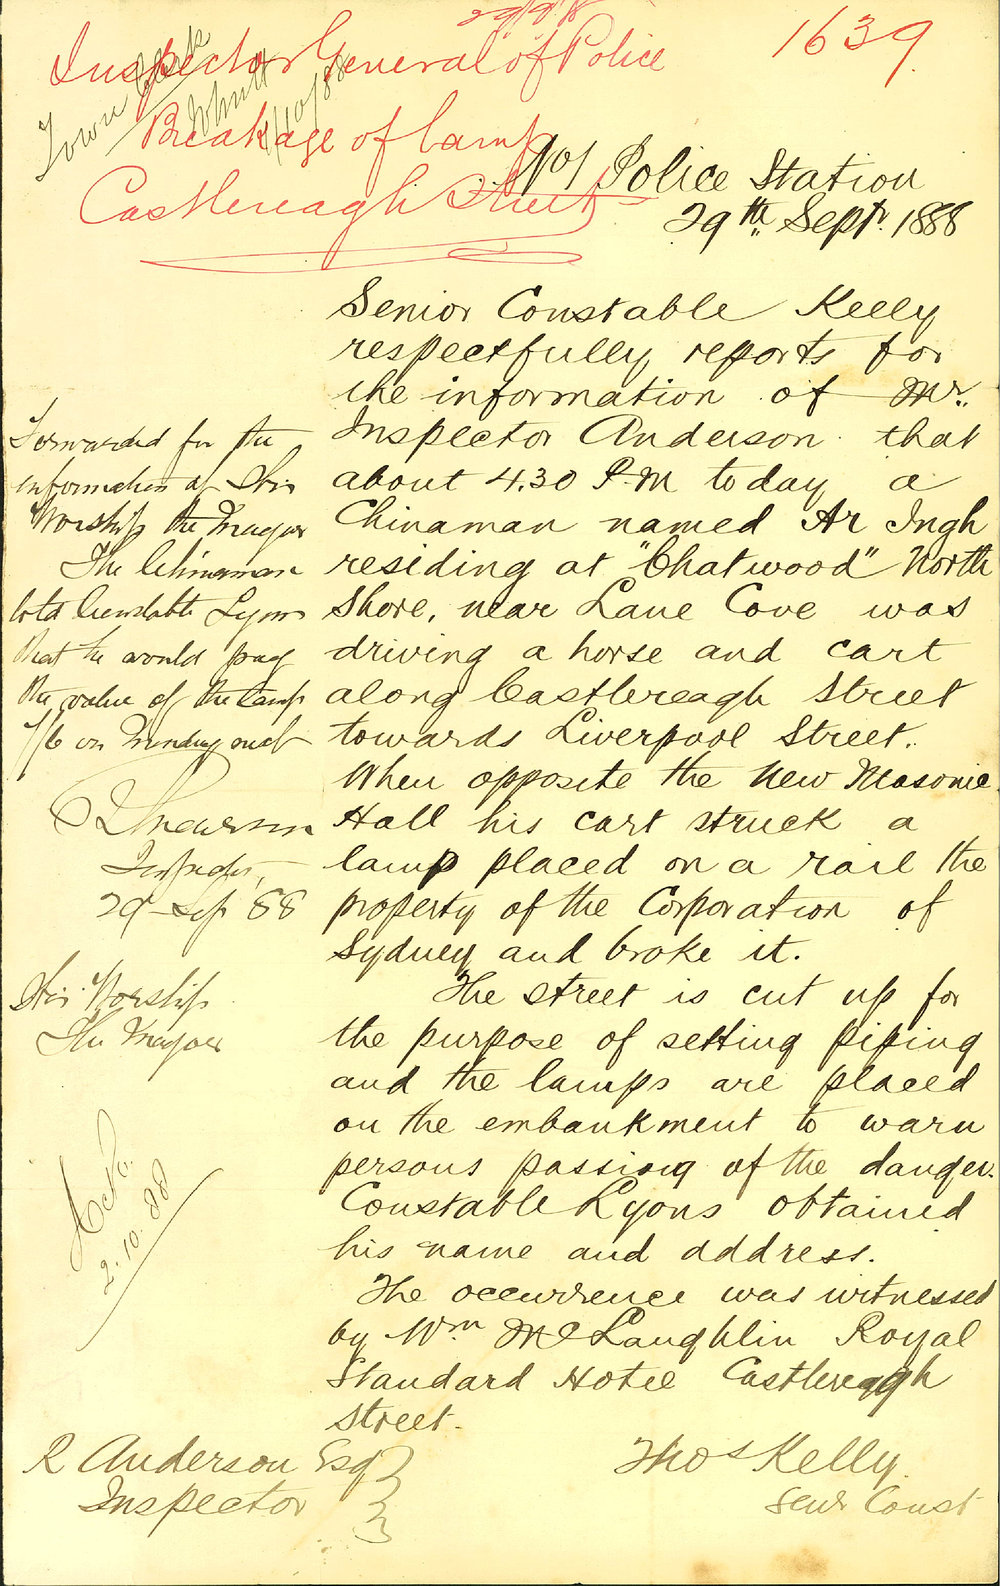 29/9/88
1639
Inspector General of Police
Breakage of lamp
Castlereagh Street
Town Clerk
No 1 Police Station
29th Septr. 1888
Senior Constable Kelly
respectfully reports for
the information of Mr.
Inspector Anderson that
about 4.30 P.M today a
Chinaman named Ar Ingh
residing at "Chatwood" North
Shore, near Lane Cove was
driving a horse and cart
along Castlereagh Street
towards Liverpool Street.
When opposite the New Masonic
Hall his cart struck a
lamp placed on a rail the
property of the Corporation of
Sydney and broke it.
The street is cut up for
the purpose of setting piping
and the lamps are placed
on the embankment to warn
persons passing of the danger.
Constable Lyons obtained
his name and address.
The occurrence was witnessed
by Wm McLaughlin Royal
Standard Hotel Castlereagh
Street.
Thos Kelly
Senr Const
R Anderson Esq
Inspector
Forwarded for the
information of His
Worship the Mayor
The Chinaman
told Constable Lyons
that he would pay
the value of the lamp
7/6 on Monday next
R Anderson
Inspector,
29 Sep 88
His Worship
The Mayor
2.10.88